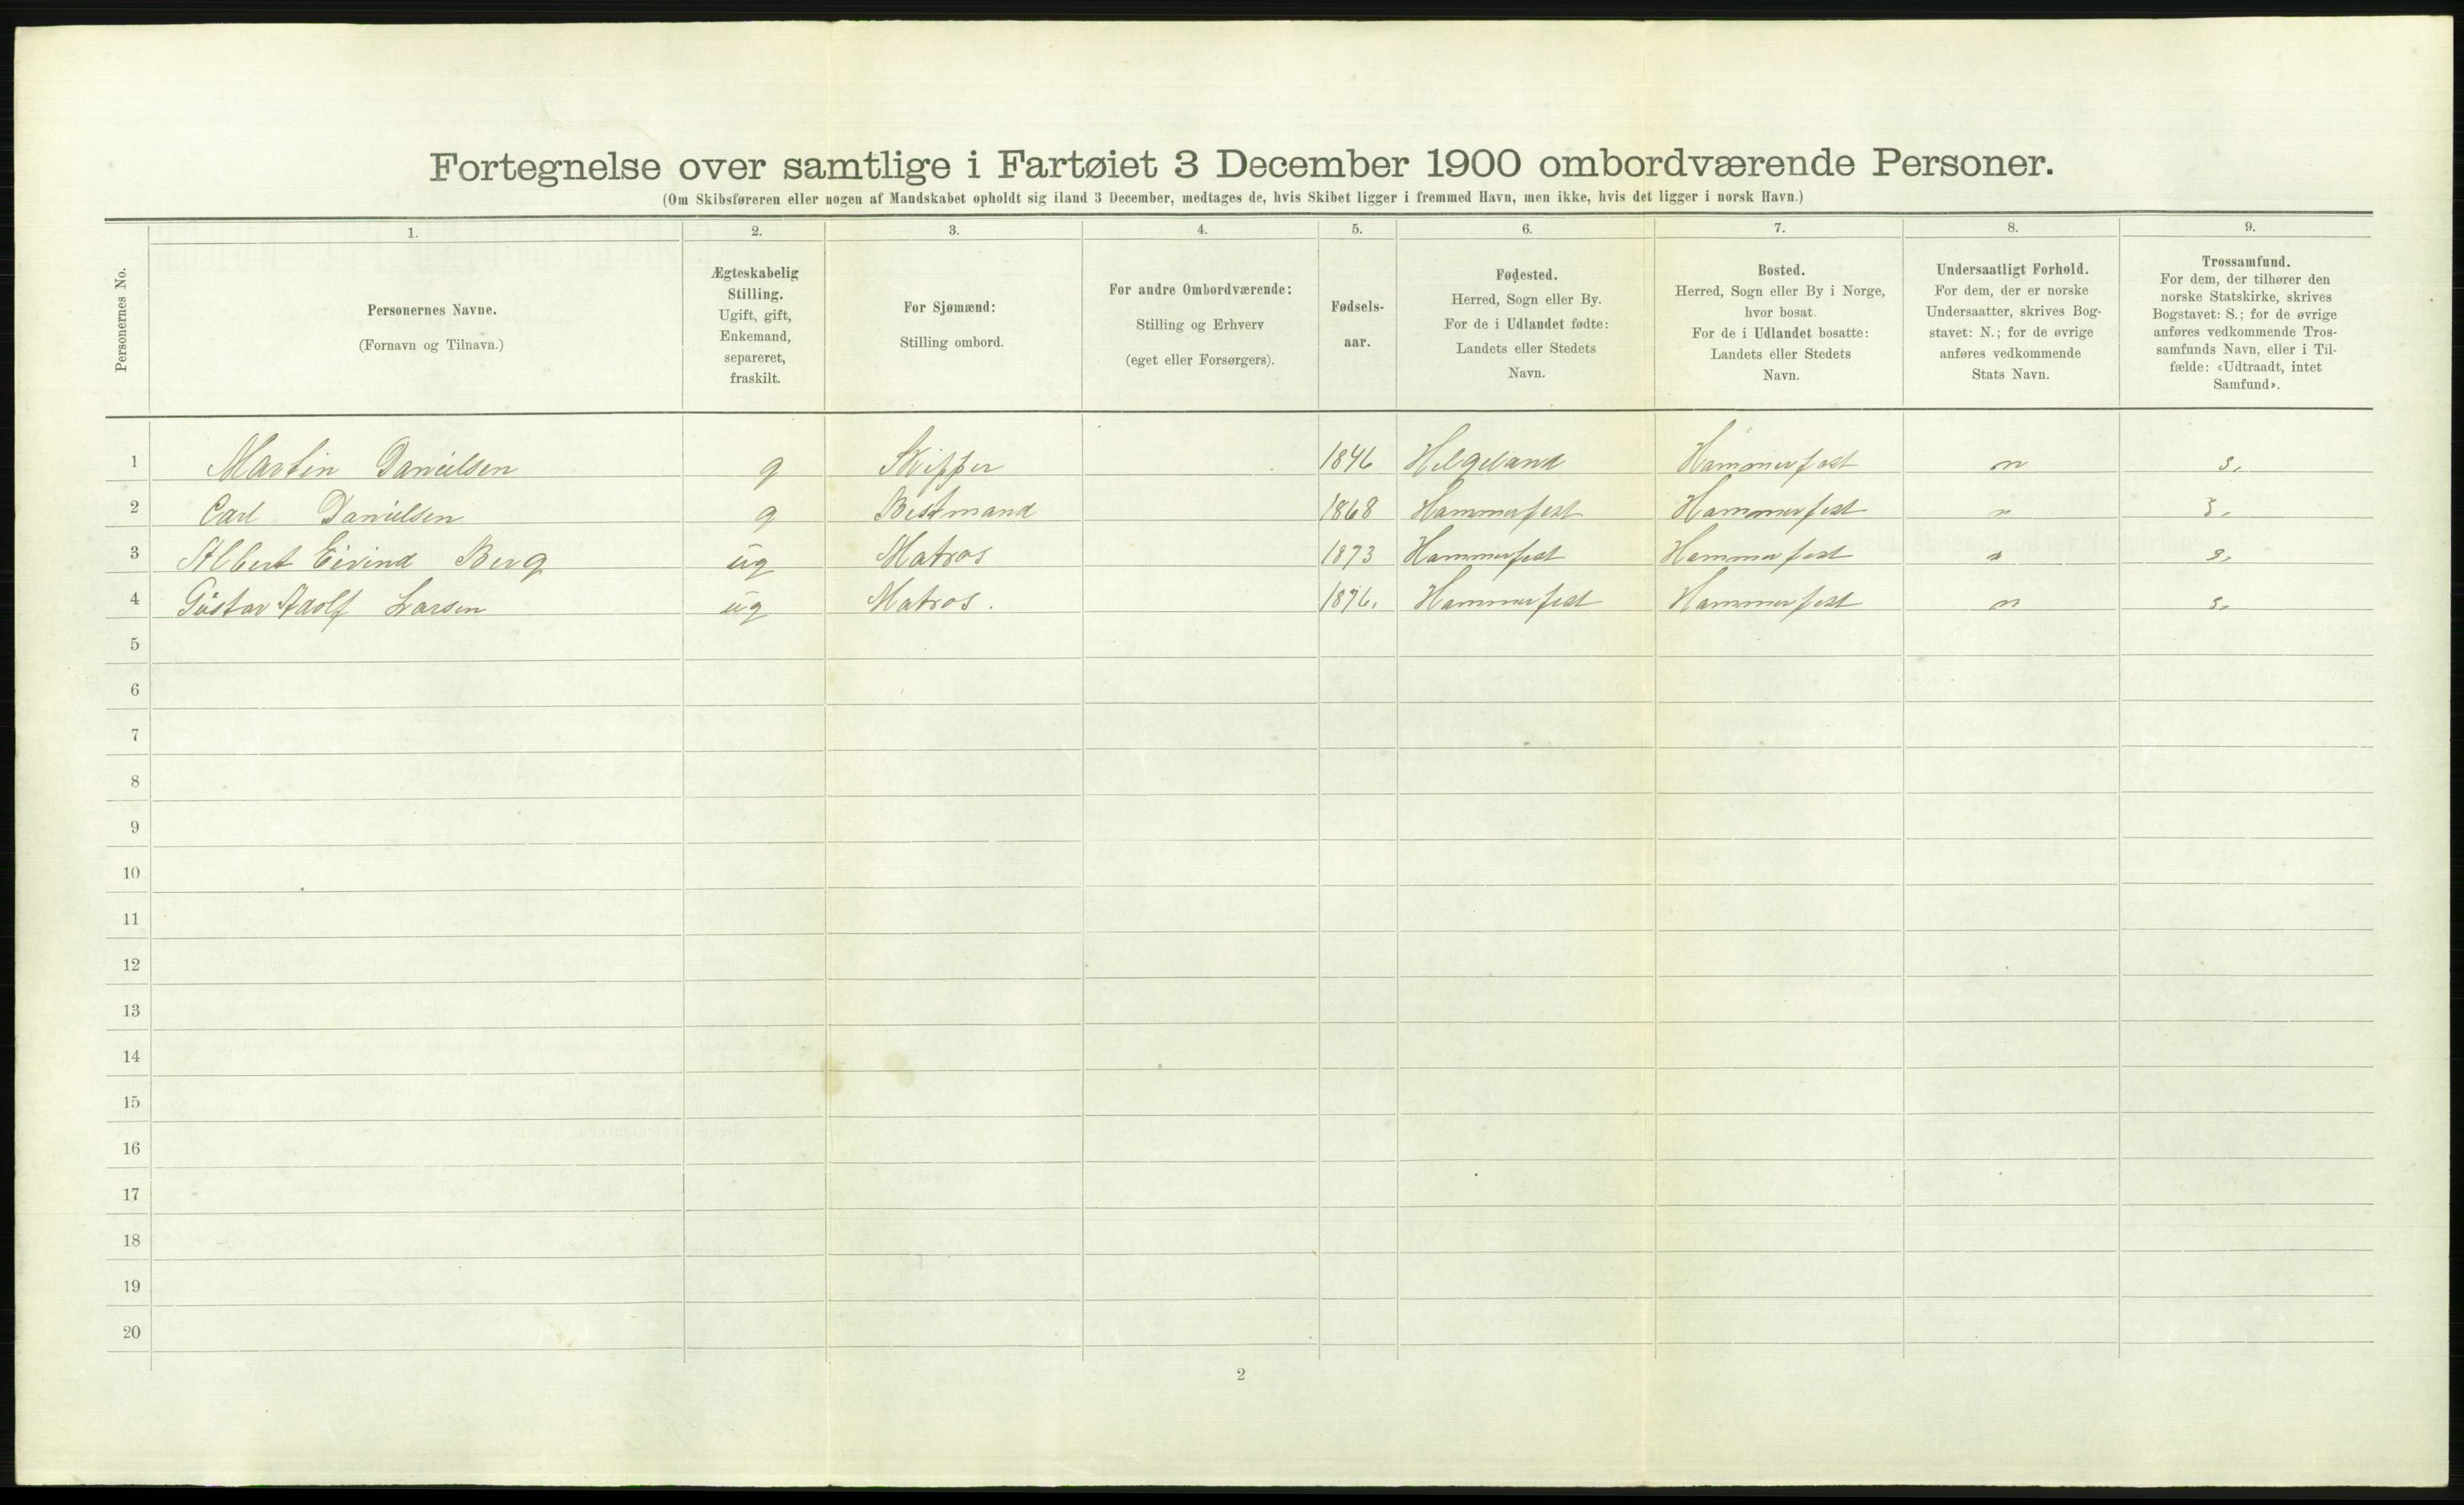 Fortegnelse over samtlige i Fartøiet 3 December 1900 ombordværende Personer.
(Om Skibsføreren eller nogen af Mandskabet opholdt sig iland 3 December, medtages de, hvis Skibet ligger i fremmed Havn, men ikke, hvis det ligger i norsk Havn.)
Personernes No.
1. 2. 3. 4. 5. 6. 7. 8. 9.
Personernes Navne.
(Fornavn og Tilnavn.)
Ægteskabelig
Stilling.
Ugift, gift,
Enkemand,
separeret,
fraskilt.
For Sjømænd:
Stilling ombord.
For andre Ombordværende:
Stilling og Erhverv
(eget eller Forsørgers).
Fødsels-
aar.
Fødested.
Herred, Sogn eller By.
For de i Udlandet fødte:
Landets eller Stedets
Navn.
Bosted.
Herred, Sogn eller By i Norge,
hvor bosat.
For de i Udlandet bosatte:
Landets eller Stedets
Navn.
Undersaatligt Forhold.
For dem, der er norske
Undersaatter, skrives Bog-
stavet: N.; for de øvrige
anføres vedkommende
Stats Navn.
Trossamfund.
For dem, der tilhører den
norske Statskirke, skrives
Bogstavet: S.; for de øvrige
anføres vedkommende Tros-
samfunds Navn, eller i Til-
fælde: «Udtraadt, intet
Samfund».
1 Martin Danielsen g Skipper 1846 Helgeland Hammerfest n s.
2 Carl Danielsen g Bestmand 1868 Hammerfest Hammerfest n s.
3 Albert Eivind Berg ug Matros 1873 Hammerfest Hammerfest n s.
4 Gustav Adolf Larsen ug Matros. 1876. Hammerfest Hammerfest n s.
5
6
7
8
9
10
11
12
13
14
15
16
17
18
19
20
2